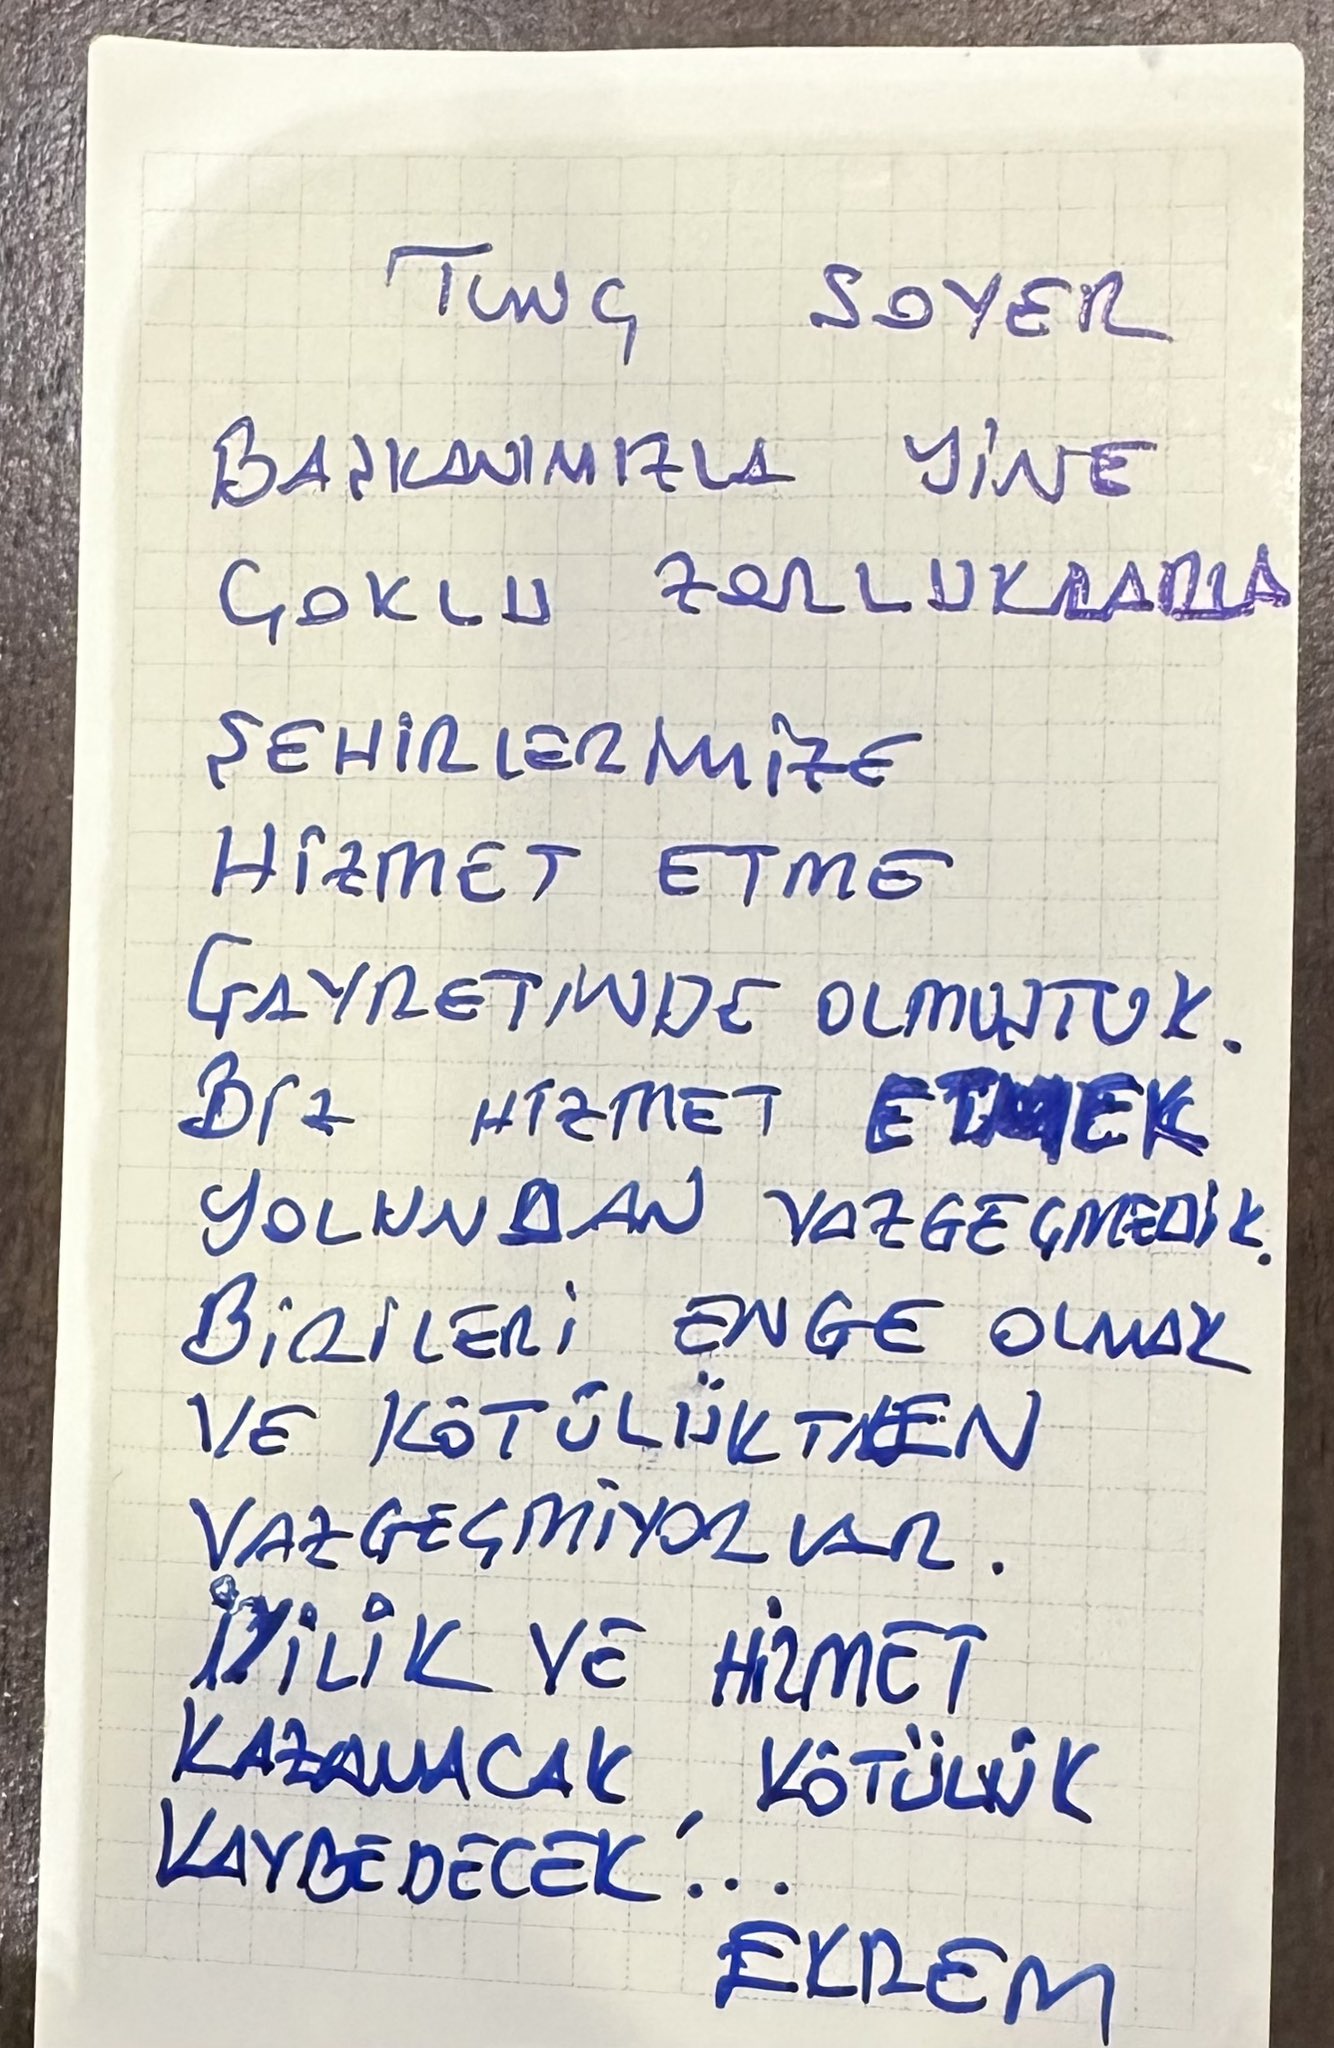 TUNÇ SOYER
BAŞKANIMIZLA YİNE
ÇOKLU ZORLUKLARLA
ŞEHİRLERİMİZE
HİZMET ETME
GAYRETİNDE OLMUŞTUK.
BİZ HİZMET ETMEK
YOLUNDAN VAZGEÇMEDİK.
BİRİLERİ ENGE OLMAK
VE KÖTÜLÜKTEN
VAZGEÇMİYORLAR.
İYİLİK VE HİZMET
KAZANACAK, KÖTÜLÜK
KAYBEDECEK!...
EKREM